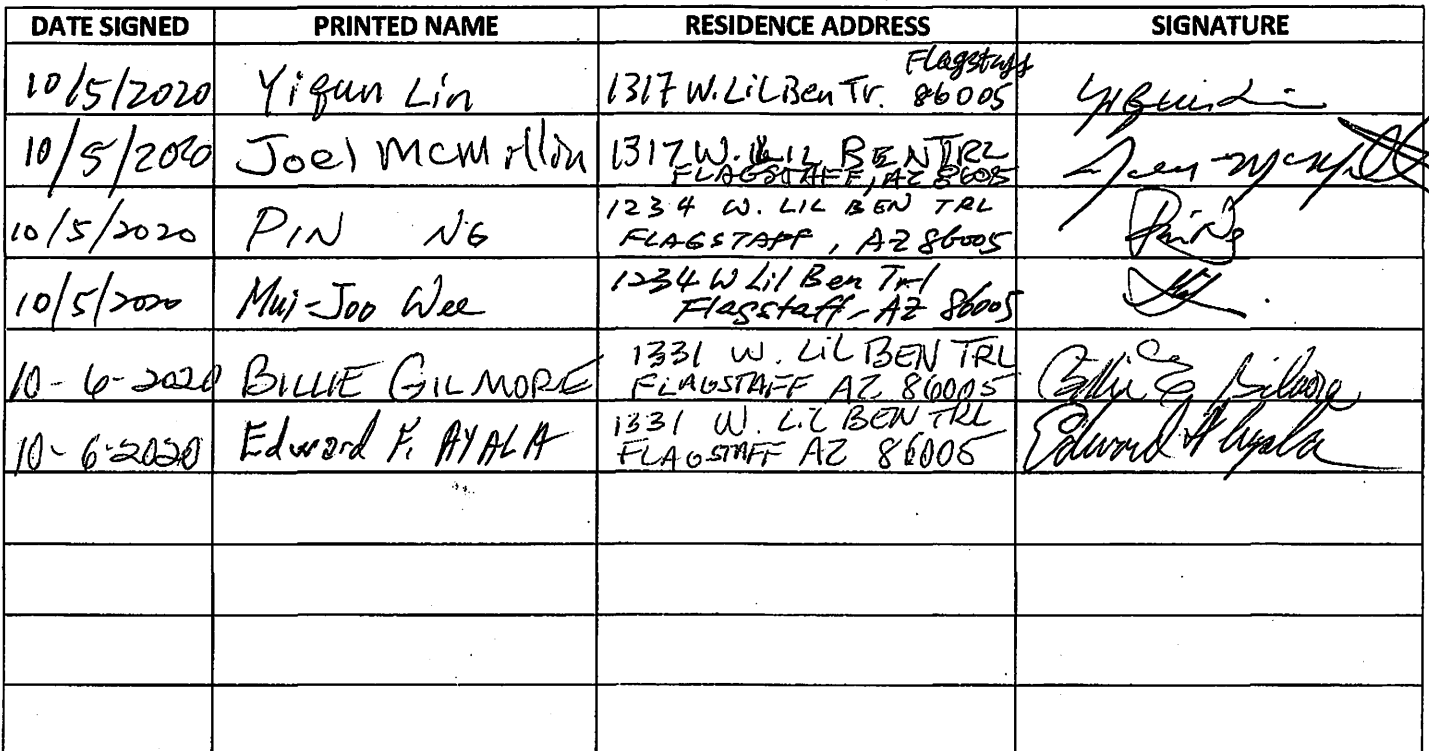 DATE SIGNED PRINTED NAME RESIDENCE ADDRESS SIGNATURE
10/5/2020 Yiqun Lin 1317 W. Lil Ben Tr. Flagstaff 86005
10/5/2020 Joel McMillin 1317 W. LIL BEN TRL
FLAGSTAFF, AZ 86005
10/5/2020 PIN NG 1234 W. LIL BEN TRL
FLAGSTAFF, AZ 86005 Pin Ng
10/5/2020 Mui-Joo Wee 1234 W Lil Ben Trl
Flagstaff, AZ 86005
10-6-2020 BILLIE GILMORE 1331 W. LIL BEN TRL
FLAGSTAFF AZ 86005 Billie Gilmore
10-6-2020 Edward F. AYALA 1331 W. LIL BEN TRL
FLAGSTAFF AZ 86005 Edward F Ayala